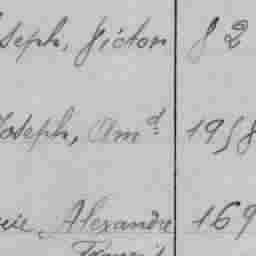 Joseph, Victor 82
Joseph, Amd 1958
Alexandre 169